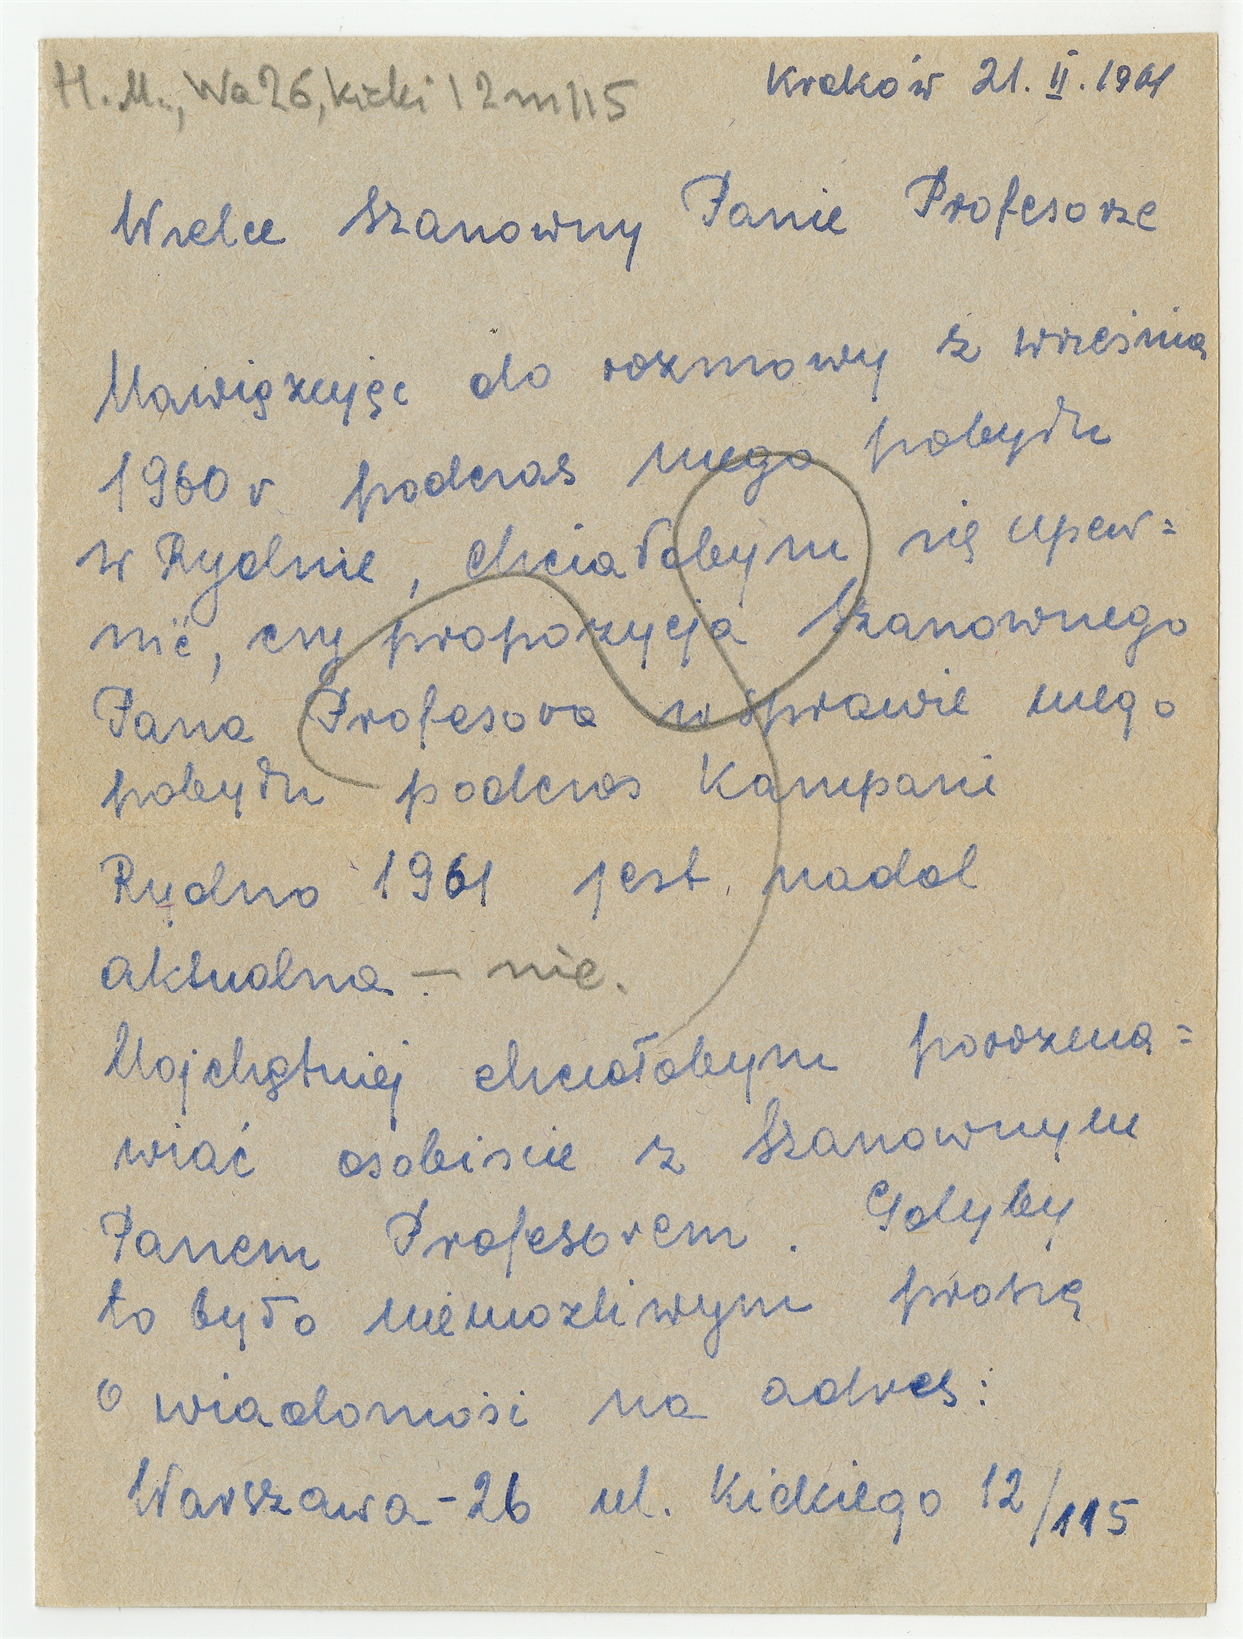 H. M., Wa 26, Kicki 12 m 115
Kraków 21. II. 1961
Wielce Szanowny Panie Profesorze
Nawiązując do rozmowy z września
1960 r podczas mego pobytu
w Rydnie, chciałobym się upew=
nić, czy propozycja Szanownego
Pana Profesora w sprawie mego
pobytu podczas Kampani
Rydno 1961 jest nadal
aktualna - nie.
Najchętniej chciałobym porozma=
wiać osobiscie z Szanownym
Panem Profesorem. Gdyby
to było niemozliwym proszę
o wiadomośi na adres:
Warszawa-26 ul. Kickiego 12/115